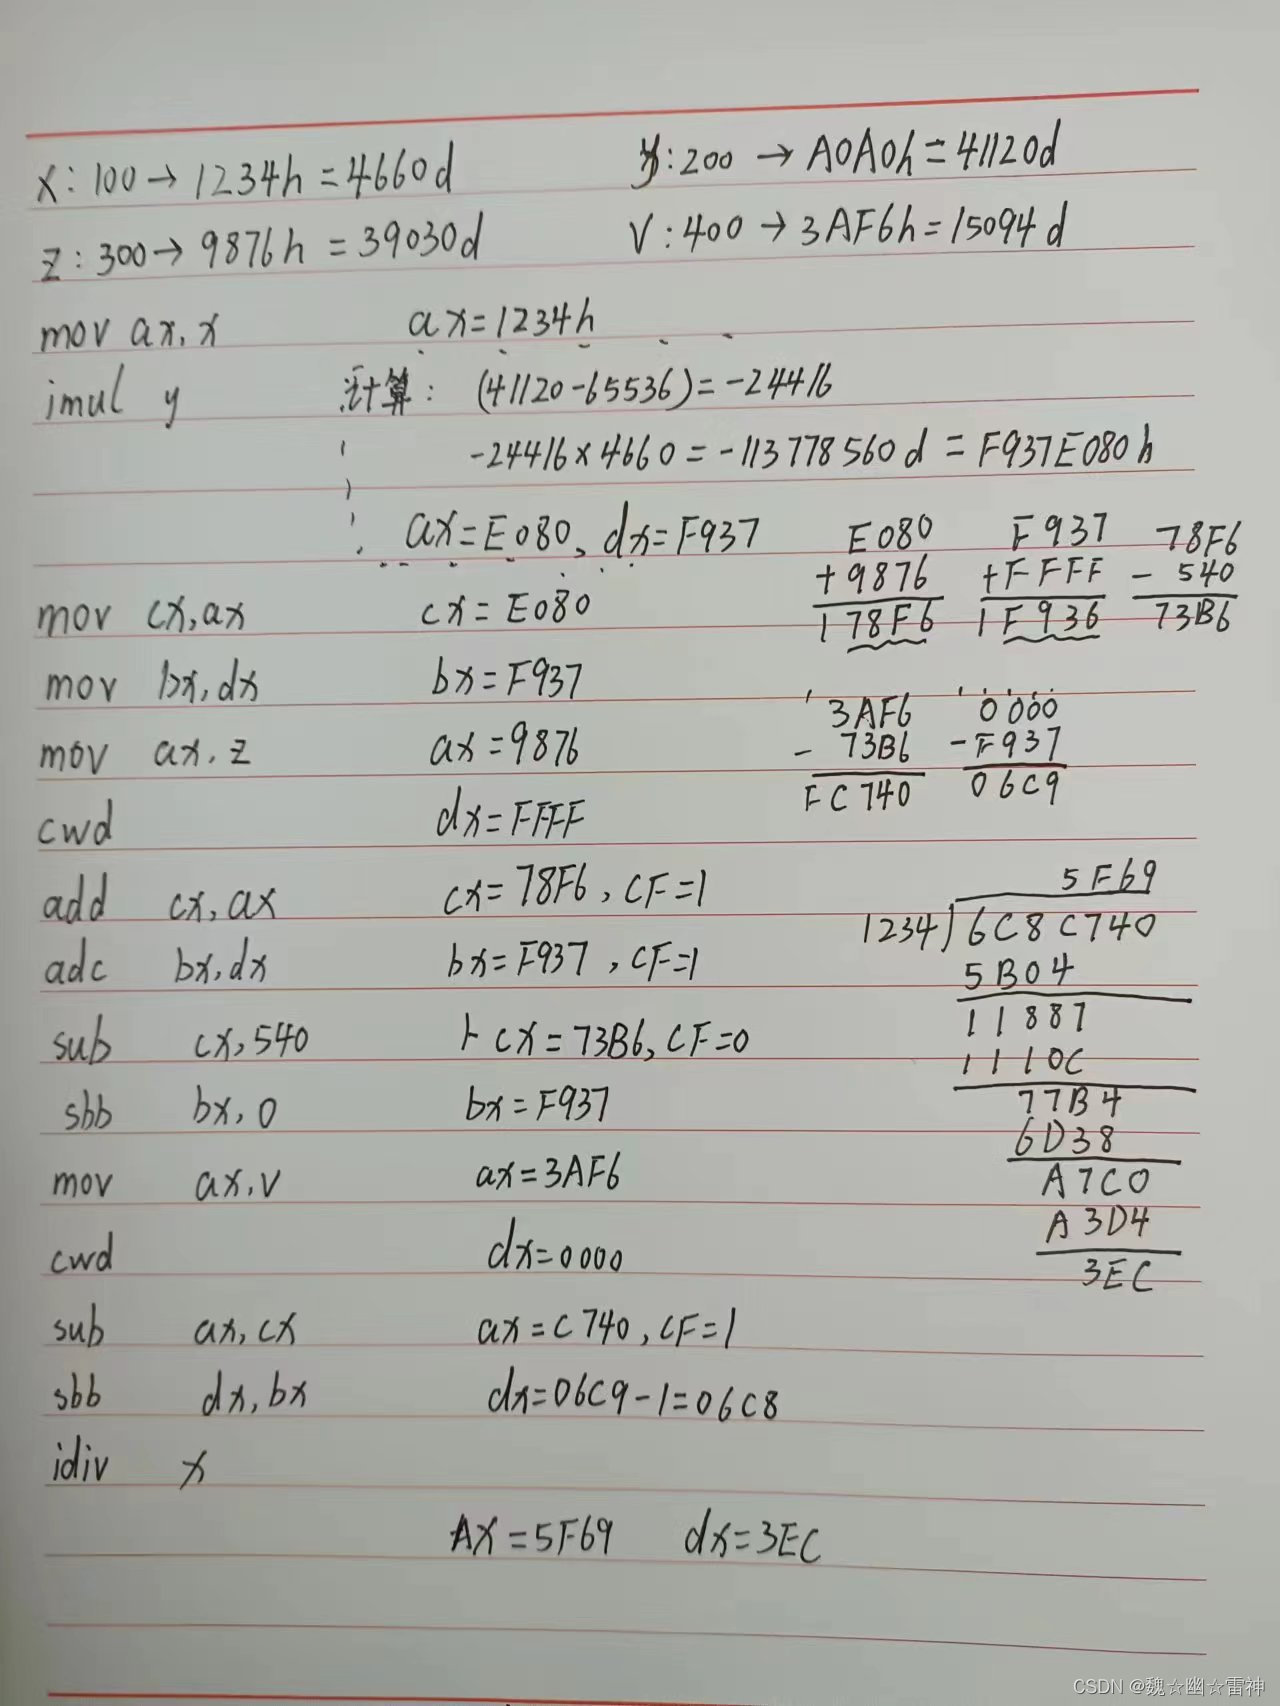 x:100→1234h=4660d y:200→A0A0h=41120d
z:300→9876h=39030d V:400→3AF6h=15094d
mov ax,x ax=1234h
imul y 计算: (41120-65536)=-24416
-24416×4660=-113778560d=F937E080h
ax=E080, dx=F937 E080 F937 78F6
+9876 +FFFF - 540
mov cx,ax cx=E080 178F6 1F936 73B6
mov bx,dx bx=F937
3AF6 0000
mov ax,z ax=9876 - 73B6 -F937
FC740 06C9
cwd dx=FFFF
add cx,ax cx=78F6, CF=1 5F69
1234)6C8C740
adc bx,dx bx=F937, CF=1 5B04
11887
sub cx,540 cx=73B6, CF=0 1110C
sbb bx,0 bx=F937 77B4
6D38
mov ax,v ax=3AF6 A7C0
A3D4
cwd dx=0000 3EC
sub ax,cx ax=C740, CF=1
sbb dx,bx dx=06C9-1=06C8
idiv x
AX=5F69 dx=3EC
CSDN @魏☆幽☆雷神